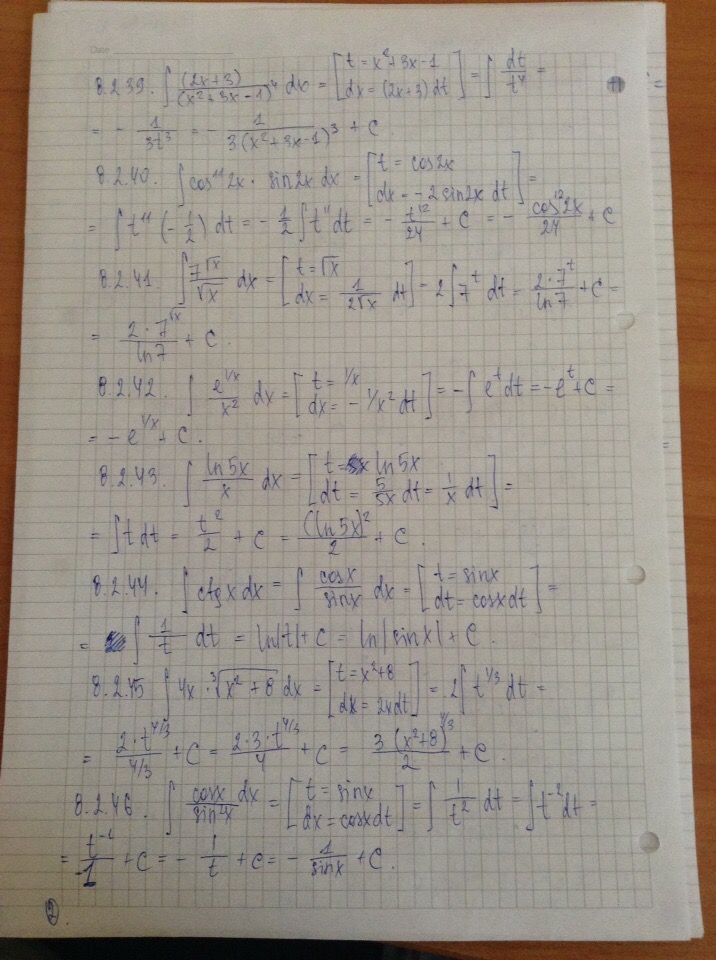 Date
8.2.39. ∫ (2x+3)/(x²+3x-1)⁴ dx = [t = x²+3x-1; dx = (2x+3) dt] = ∫ dt/t⁴ =
= - 1/3t³ = - 1/3(x²+3x-1)³ + C
8.2.40. ∫ cos¹¹2x · sin2x dx = [t = cos2x; dx = -2sin2x dt] =
= ∫ t¹¹ (-1/2) dt = - 1/2 ∫ t¹¹ dt = - t¹²/24 + C = - cos¹²2x/24 + C
8.2.41. ∫ 7^√x/√x dx = [t = √x; dx = 1/2√x dt] = 2∫ 7^t dt = 2·7^t/ln7 + C =
= 2·7^√x/ln7 + C.
8.2.42. ∫ e^(1/x)/x² dx = [t = 1/x; dx = -1/x² dt] = -∫ e^t dt = -e^t + C =
= -e^(1/x) + C.
8.2.43. ∫ ln5x/x dx = [t = ln5x; dt = 5/5x dt = 1/x dt] =
= ∫ t dt = t²/2 + C = (ln5x)²/2 + C.
8.2.44. ∫ ctgx dx = ∫ cosx/sinx dx = [t = sinx; dt = cosx dt] =
= ∫ 1/t dt = ln|t| + C = ln|sinx| + C.
8.2.45 ∫ 4x · ∛(x²+8) dx = [t = x²+8; dx = 2x dt] = 2∫ t^(1/3) dt =
= 2·t^(4/3)/(4/3) + C = 2·3·t^(4/3)/4 + C = 3(x²+8)^(4/3)/2 + C.
8.2.46. ∫ cosx/sin²x dx = [t = sinx; dx = cosx dt] = ∫ 1/t² dt = ∫ t⁻² dt =
= t⁻¹/-1 + C = - 1/t + C = - 1/sinx + C.
2